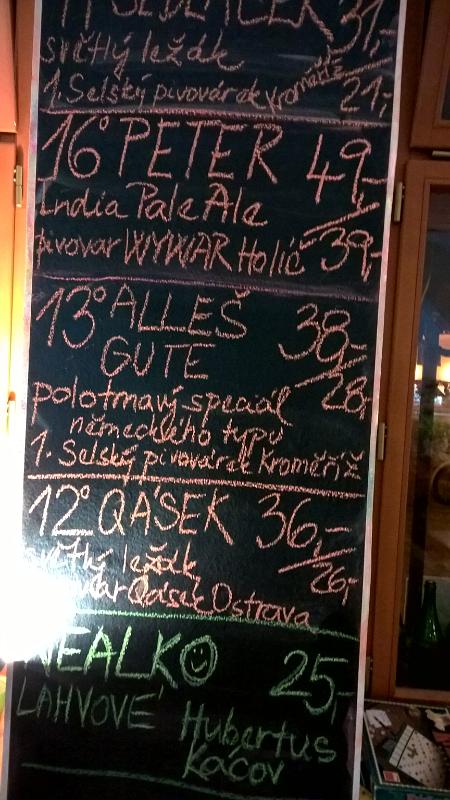 11° SEDLÁČEK 31,-
světlý ležák
1. Selský pivovárek Kroměříž 21,-
16° PETER 49,-
India Pale Ale
pivovar WYWAR Holíč 39,-
13° ALLEŠ 38,-
GUTE 28,-
polotmavý speciál
německého typu
1. Selský pivovárek Kroměříž
12° QÁSEK 36,-
světlý ležák 26,-
Qásek Ostrava
NEALKO 25,-
LAHVOVÉ Hubertus
Kácov